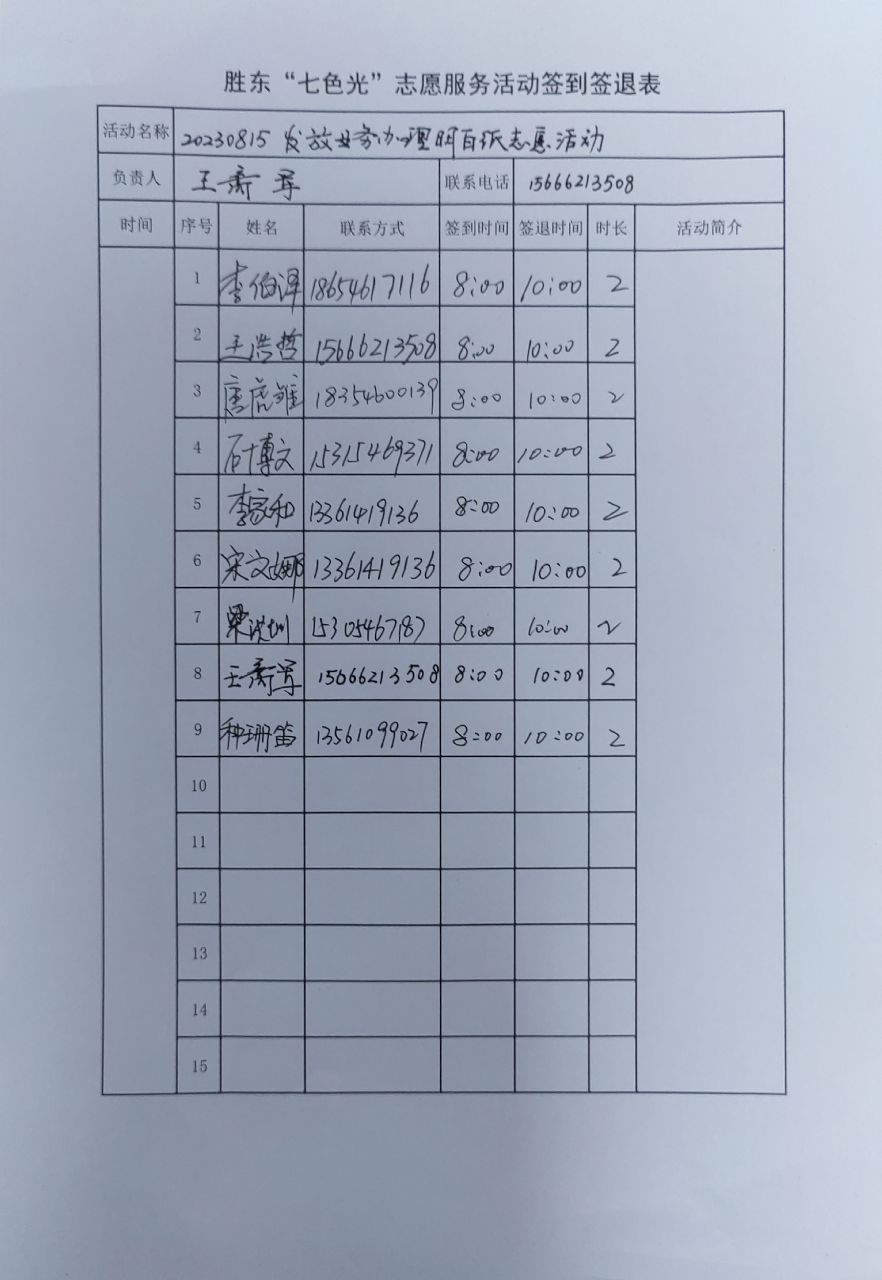 胜东“七色光”志愿服务活动签到签退表
活动名称 20230815 发放业务办理明白纸志愿活动
负责人 王 军 联系电话 15666213508
时间 序号 姓名 联系方式 签到时间 签退时间 时长 活动简介
1 李伯泽 18654617116 8:00 10:00 2
2 王浩哲 15666213508 8:00 10:00 2
3 唐虎雄 18354600139 8:00 10:00 2
4 石博文 15315469371 8:00 10:00 2
5 李家和 13361419136 8:00 10:00 2
6 宋文娜 13361419136 8:00 10:00 2
7 梁 15305467187 8:00 10:00 2
8 王 军 15666213508 8:00 10:00 2
9 种珊笛 13561099027 8:00 10:00 2
10
11
12
13
14
15